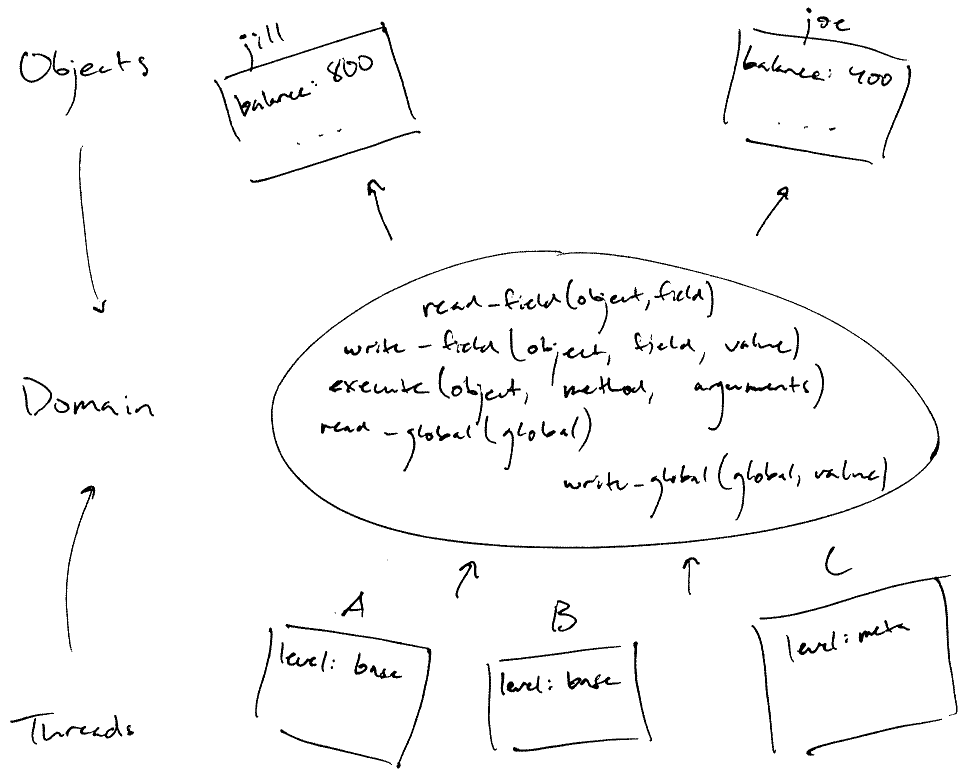 Objects
jill
balance: 800
...
joe
balance: 400
...
Domain
read-field(object, field)
write-field(object, field, value)
execute(object, method, arguments)
read-global(global)
write-global(global, value)
Threads
A
level: base
B
level: base
C
level: meta